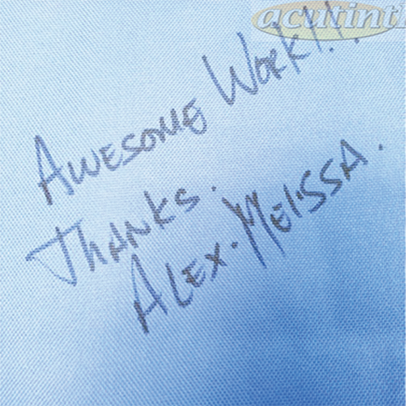 acutinth
Awesome Work!!.
Thanks.
Alex.Melissa.